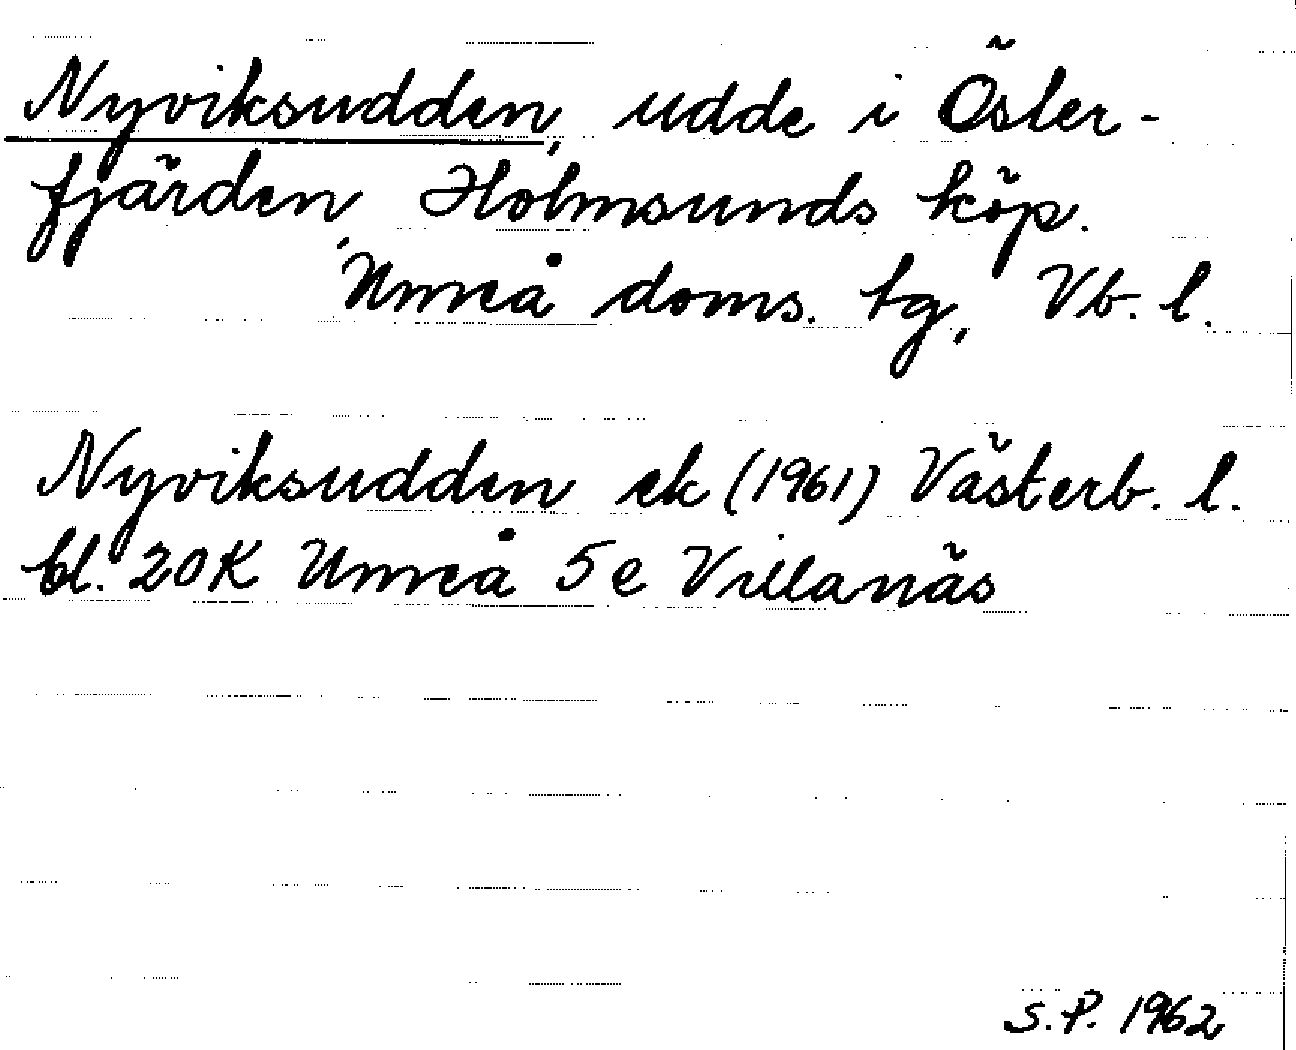 Nyviksudden, udde i Öster-
fjärden, Holmsunds köp.
Umeå doms. tg, Vb. l.
Nyviksudden ek (1961) Västerb. l.
bl. 20K Umeå 5e Villanäs
S.P. 1962